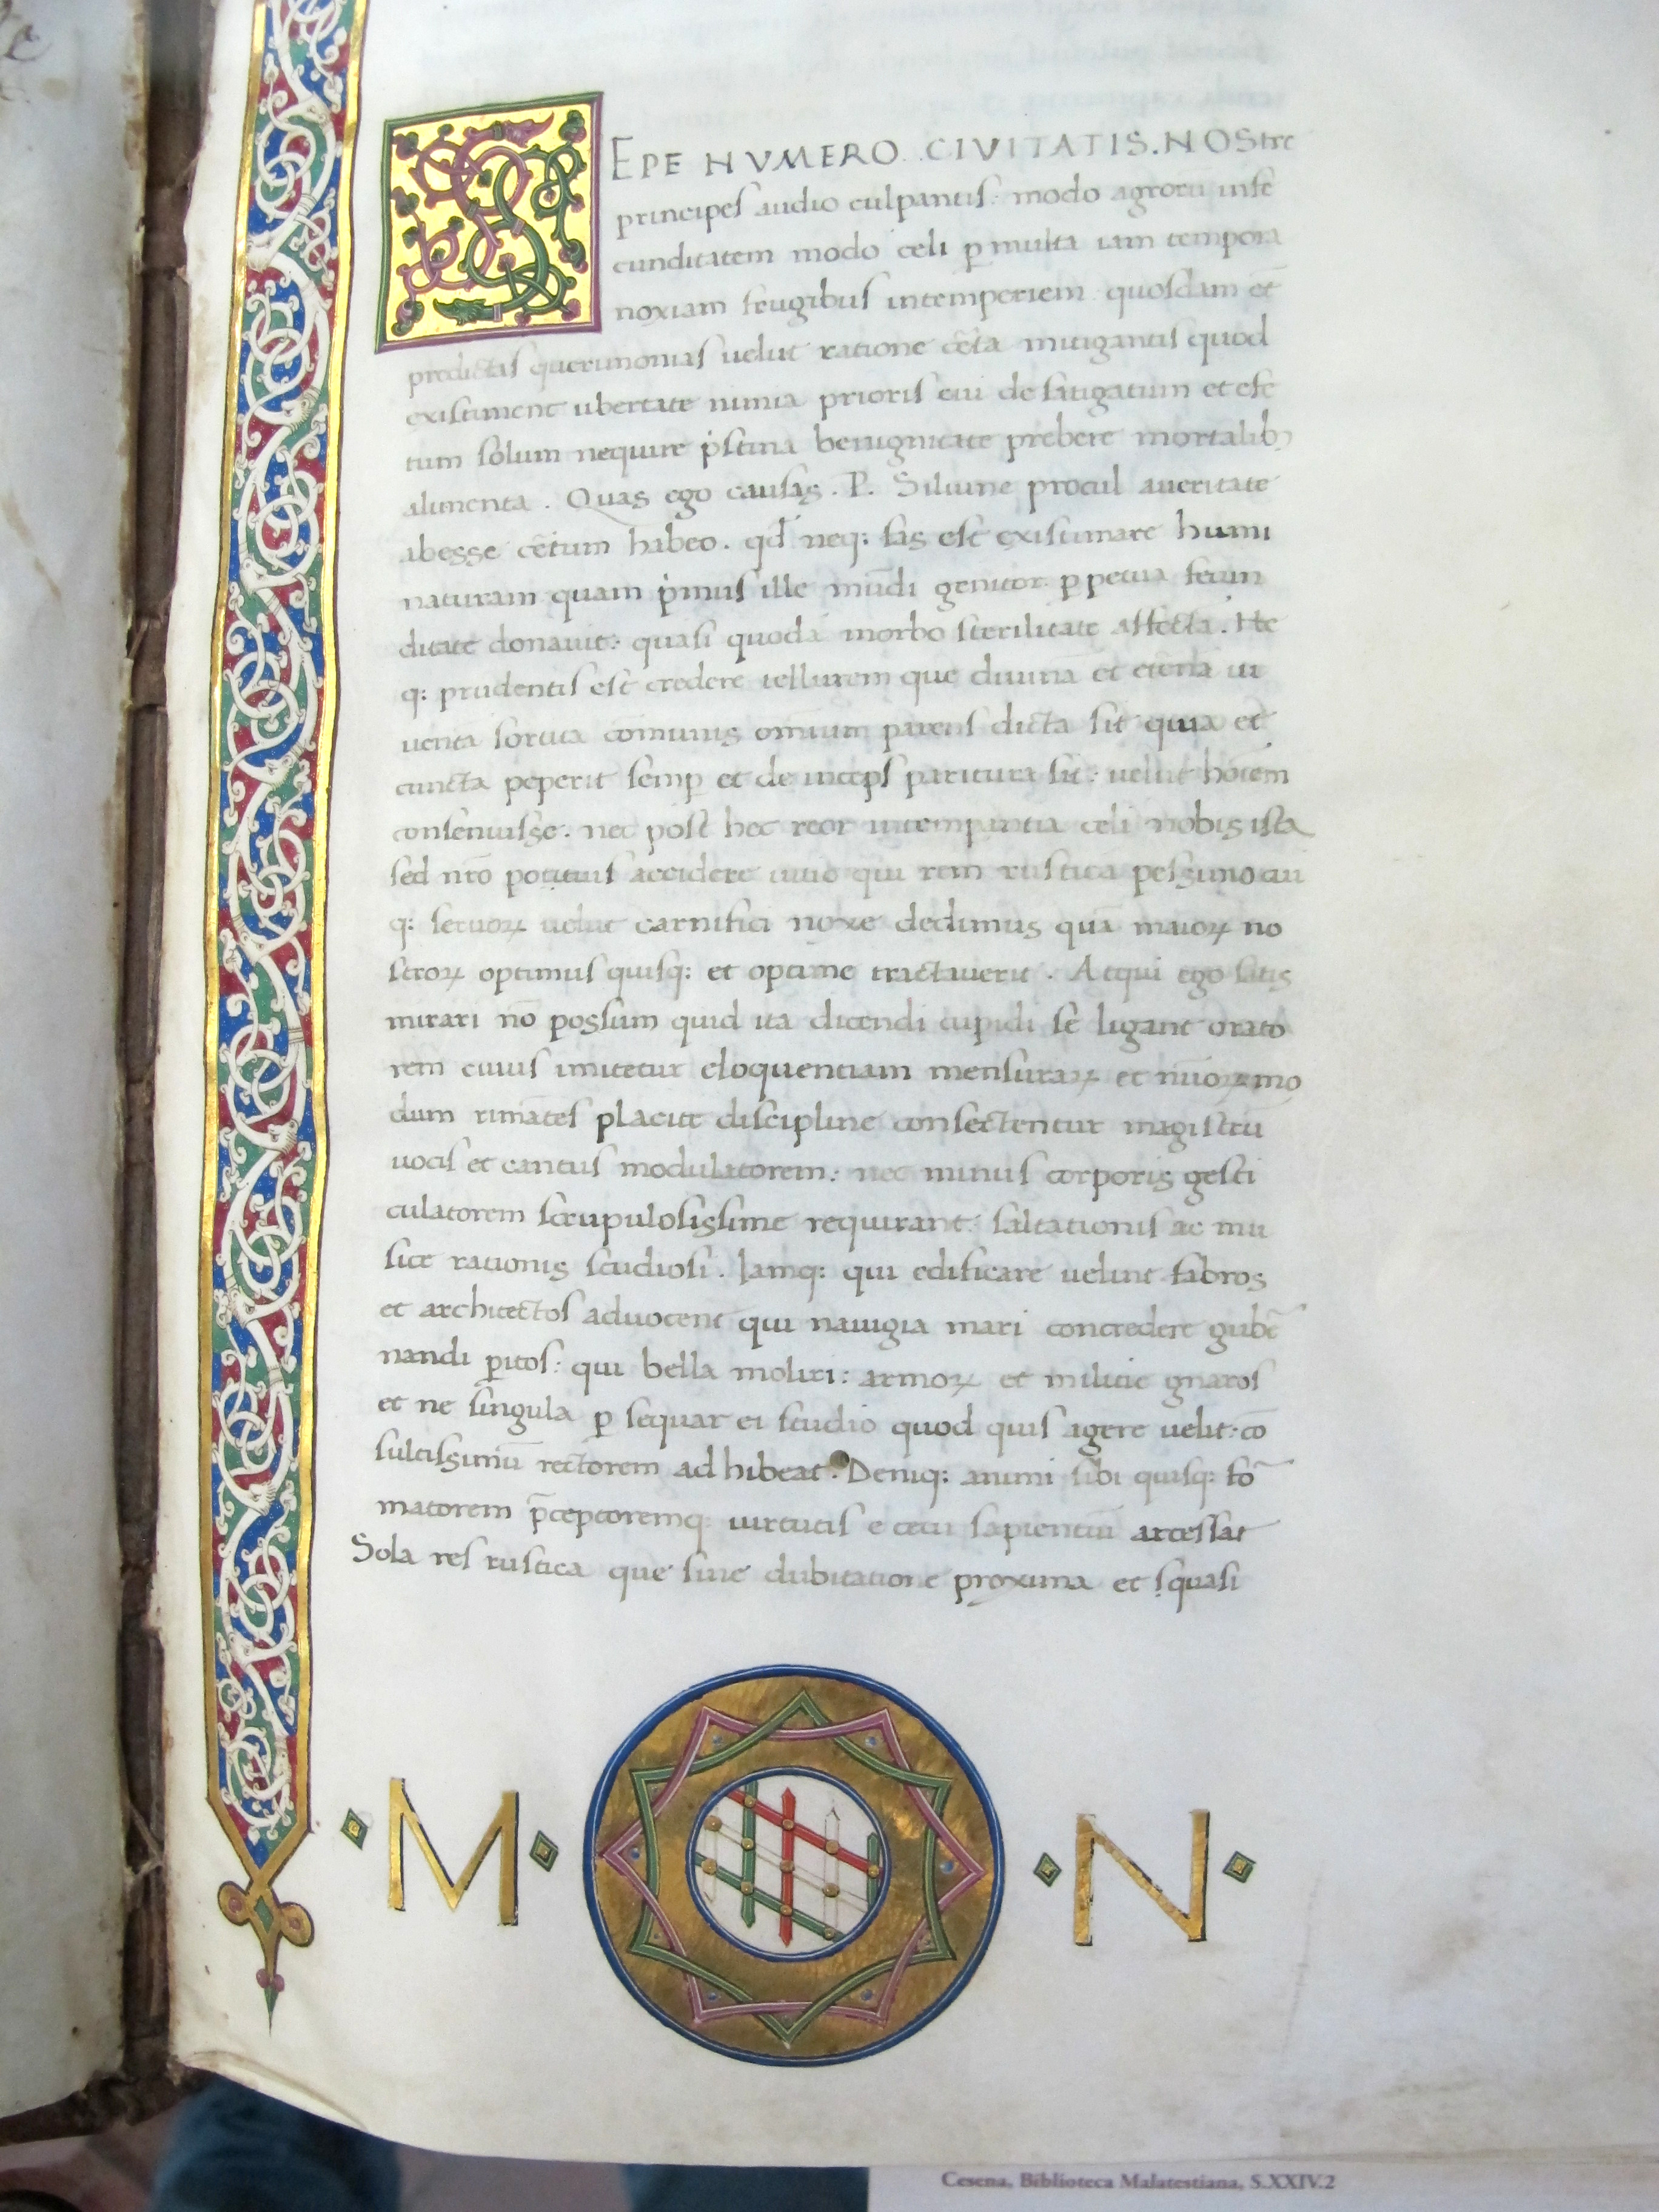 SEPE NVMERO CIVITATIS. NOStre
principes audio culpantis: modo agrorū infe
cunditatem modo celi p̱ multa iam tempora
noxiam frugibus intemperiem quosdam et̄
predictas querimonias uelut ratione c̄eta mitigantis quod
existiment ubertate nimia prioris eui defatigatum et efe
tum solum nequire p̍stina benignitate prebere mortalibꝫ
alimenta. Quas ego causas. P. Siluine procul aueritate
abesse c̄etum habeo. qd̄ neq: fas est existimare humi
naturam quam p̍mus ille mūdi genitor p̱petua fecun
ditate donauit: quasi quodā morbo sterilitate affecta. He
q: prudentis est credere tellurem que diuinā et et̄enā iu
uentā sortita cōmunis omniūm parens dicta sit quia et
cuncta peperit semp̱ et deinceps paritura sit: uelut hoīem
consenuisse. nec post hec reor
celi nobis ista
sed nr̄o potitus accidere uitio qui rem rusticā pessimo cui
q: seruoꝝ uelut carnifici noxe dedimus quā maioꝝ no
stroꝝ optimus quisq: et optime tractauerit. Atqui ego satis
mirari nō possum quid ita dicendi cupidi se ligant orato
rem cuius imitetur eloquentiam mensuraꝝ et nūoꝝ mo
dum rimātes placite discipline consectentur magistrū
uocis et cantus modulatorem: nec minus corporis gesti
culatorem scrupulosissime requirant: saltationis ac mu
sice rationis studiosi. Iamq: qui edificare uelint fabros
et architectos aduocent qui nauigia mari concredere gub̄e
nandi p̱itos: qui bella moliri: armoꝝ et militie gnaros
et ne singula p̱ sequar ei studio quod quis agere uelit: cō
sultissimū rectorem adhibeat. Deniq: animi sibi quisq: fo‾
matorem p̄ceptoremq: uirtutis e cetu sapientiū arcessat
Sola res rustica que sine dubitatione proxima et quasi
M N
Cesena, Biblioteca Malatestiana, S.XXIV.2